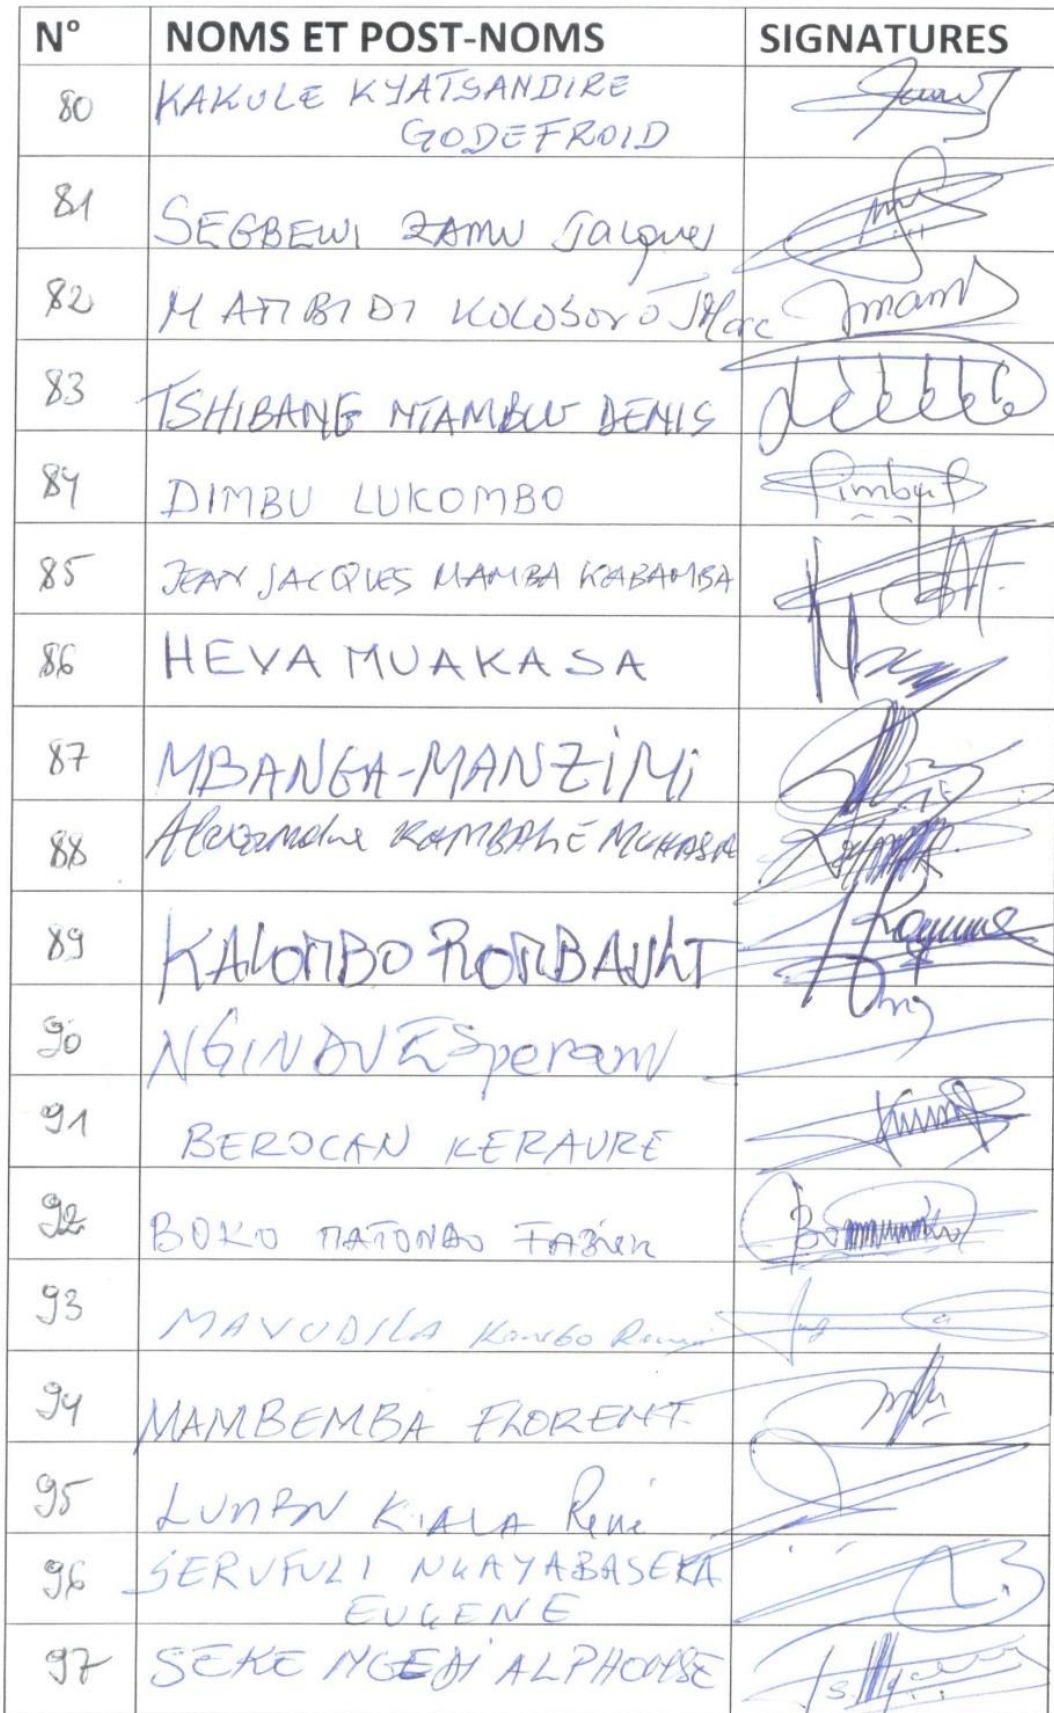 N° NOMS ET POST-NOMS SIGNATURES
80 KAKULE KYATSANDIRE
GODEFROID
81 SEGBEWI ZAMU Jacques
82 MATIBIDI KOLOSOVO J Marc
83 TSHIBANG NTAMBU DENIS
84 DIMBU LUKOMBO
85 JEAN JACQUES MAMBA KABAMBA
86 HEVA MUAKASA
87 MBANGA-MANZIMI
88 Alexandre KAMBALE MUHASA
89 KALOMBO ROMBAULT
90 NGINDU
91 BEROCAN KERAURE
92 BOKO MATONDO FABIEN
93 MAVUDILA
94 MAMBEMBA FLORENT
95 KIALA René
96 SERUFULI NGAYABASEKA
EUGENE
97 SEKE ALPHONSE